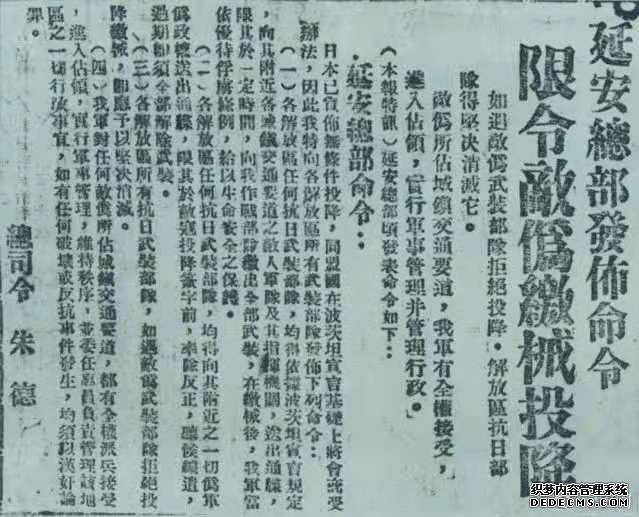 延安總部發佈命令
限令敵偽繳械投降
如遇敵偽武裝部隊拒絕投降。解放區抗日部
隊得堅決消滅它。
敵偽所佔城鎮交通要道，我軍有全權接受，
進入佔領，實行軍事管理并管理行政。
（本報特訊）延安總部頃發表命令如下：
延安總部命令：
日本已宣佈無條件投降，同盟國在波茨坦宣言基礎上將會商受
辦法，因此我特向各解放區所有武裝部隊發佈下列命令：
（一）各解放區任何抗日武裝部隊，均得依據波茨坦宣言規定
，向其附近各城鎮交通要道之敵人軍隊及其指揮機關，送出通牒，
限其於一定時間，向我作戰部隊繳出全部武裝，在繳械後，我軍當
依優待俘虜條例，給以生命安全之保護。
（二）各解放區任何抗日武裝部隊，均得向其附近之一切偽軍
偽政權送出通牒，限其於敵寇投降簽字前，率隊反正，聽候編遣，
過期即須全部解除武裝。
（三）各解放區所有抗日武裝部隊，如遇敵偽武裝部隊拒絕投
降繳械，即應予以堅決消滅。
（四）我軍對任何敵偽所佔城鎮交通要道，都有全權派兵接受
，進入佔領，實行軍事管理，維持秩序，並委任專員負責管理該地
區之一切行政事宜，如有任何破壞或反抗事件發生，均須以漢奸論
罪。
總司令 朱德
织梦内容管理系统
DEDECMS.COM